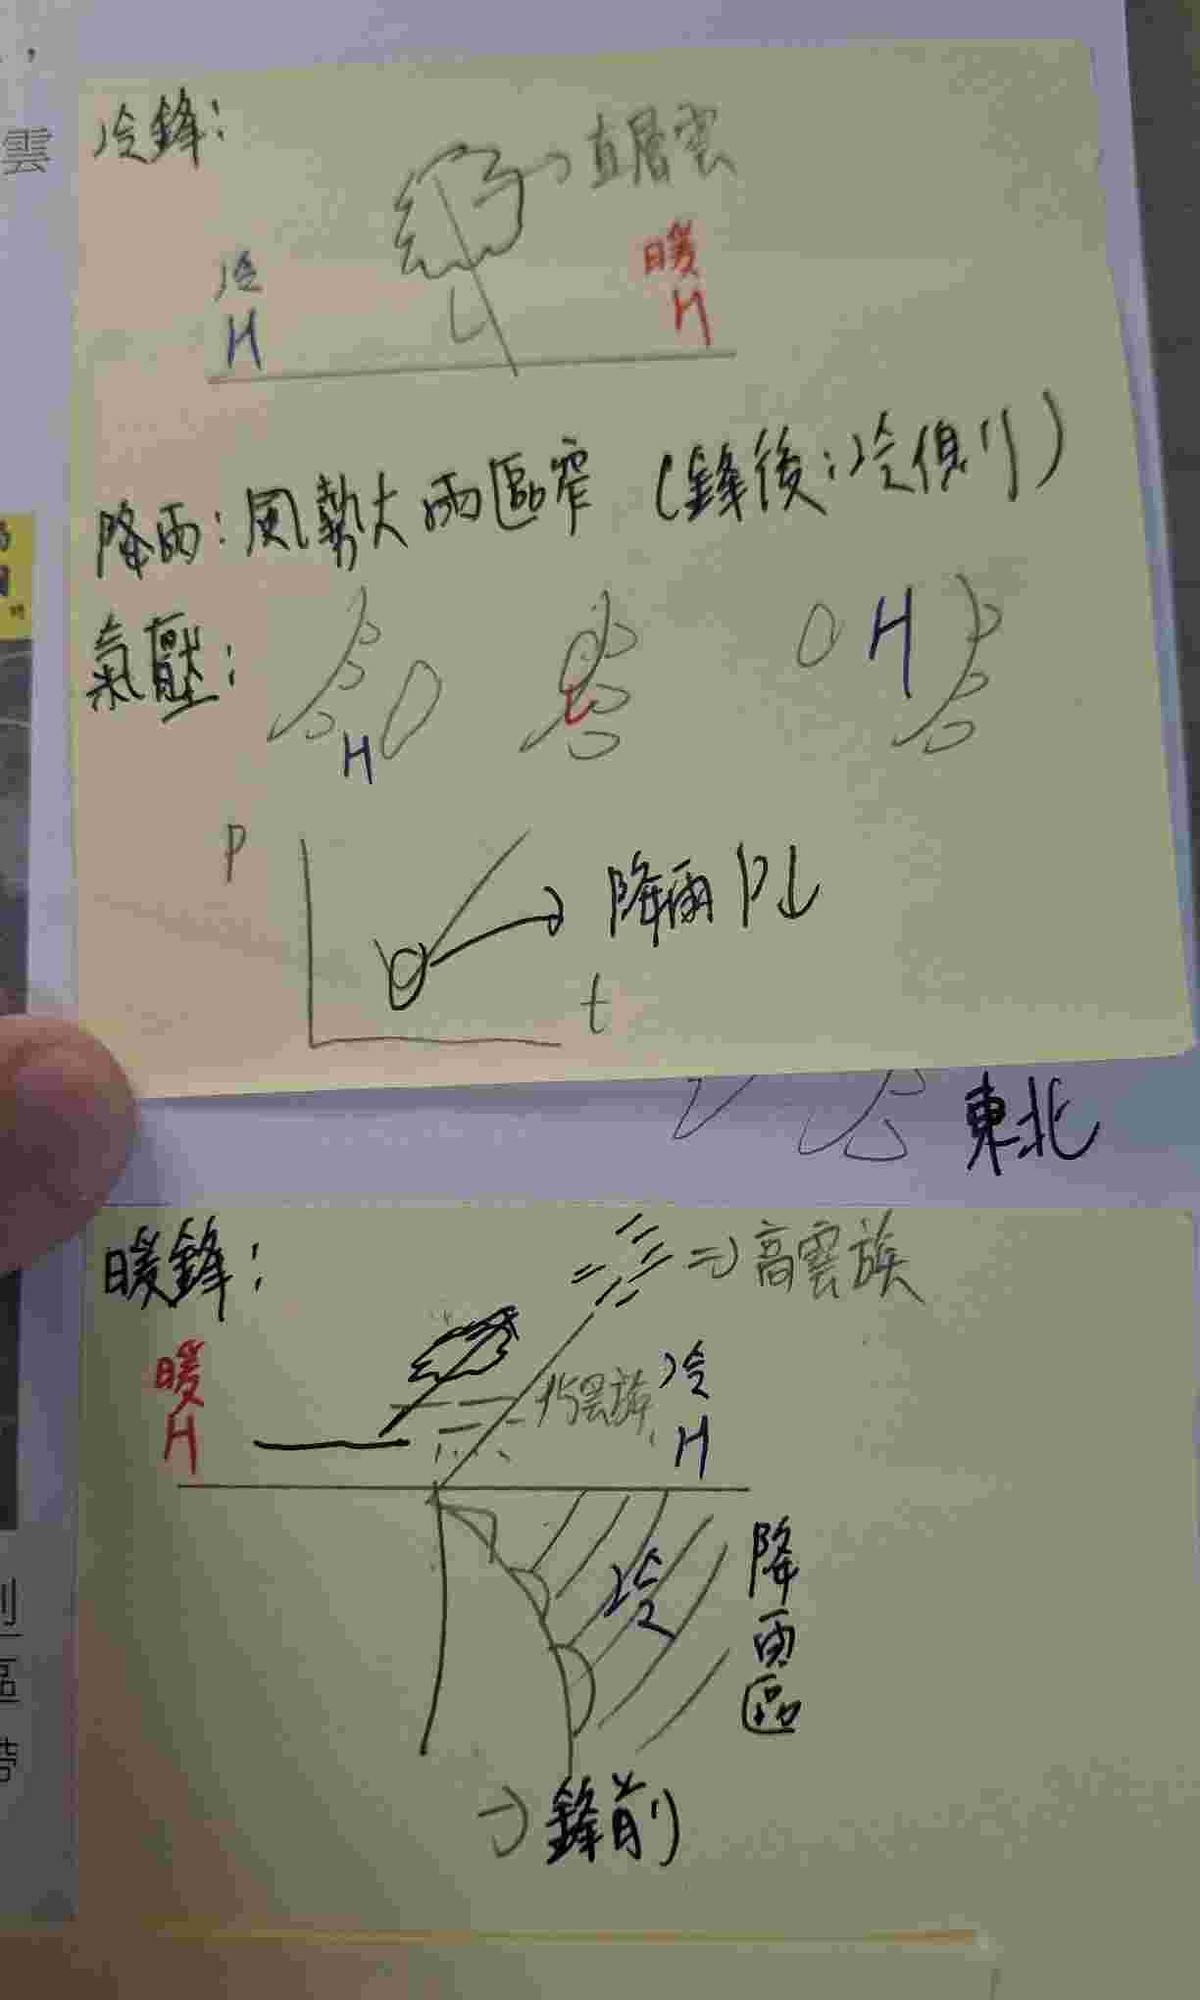 雲
冷鋒：
直層雲
冷
H
暖
H
L
降雨：風勢大雨區窄（鋒後：冷側）
氣壓：
H
L
H
P
降雨P↓
t
東北
暖鋒：
⇒高雲族
暖
H
冷
H
冷
降雨區
→鋒前
區
帶